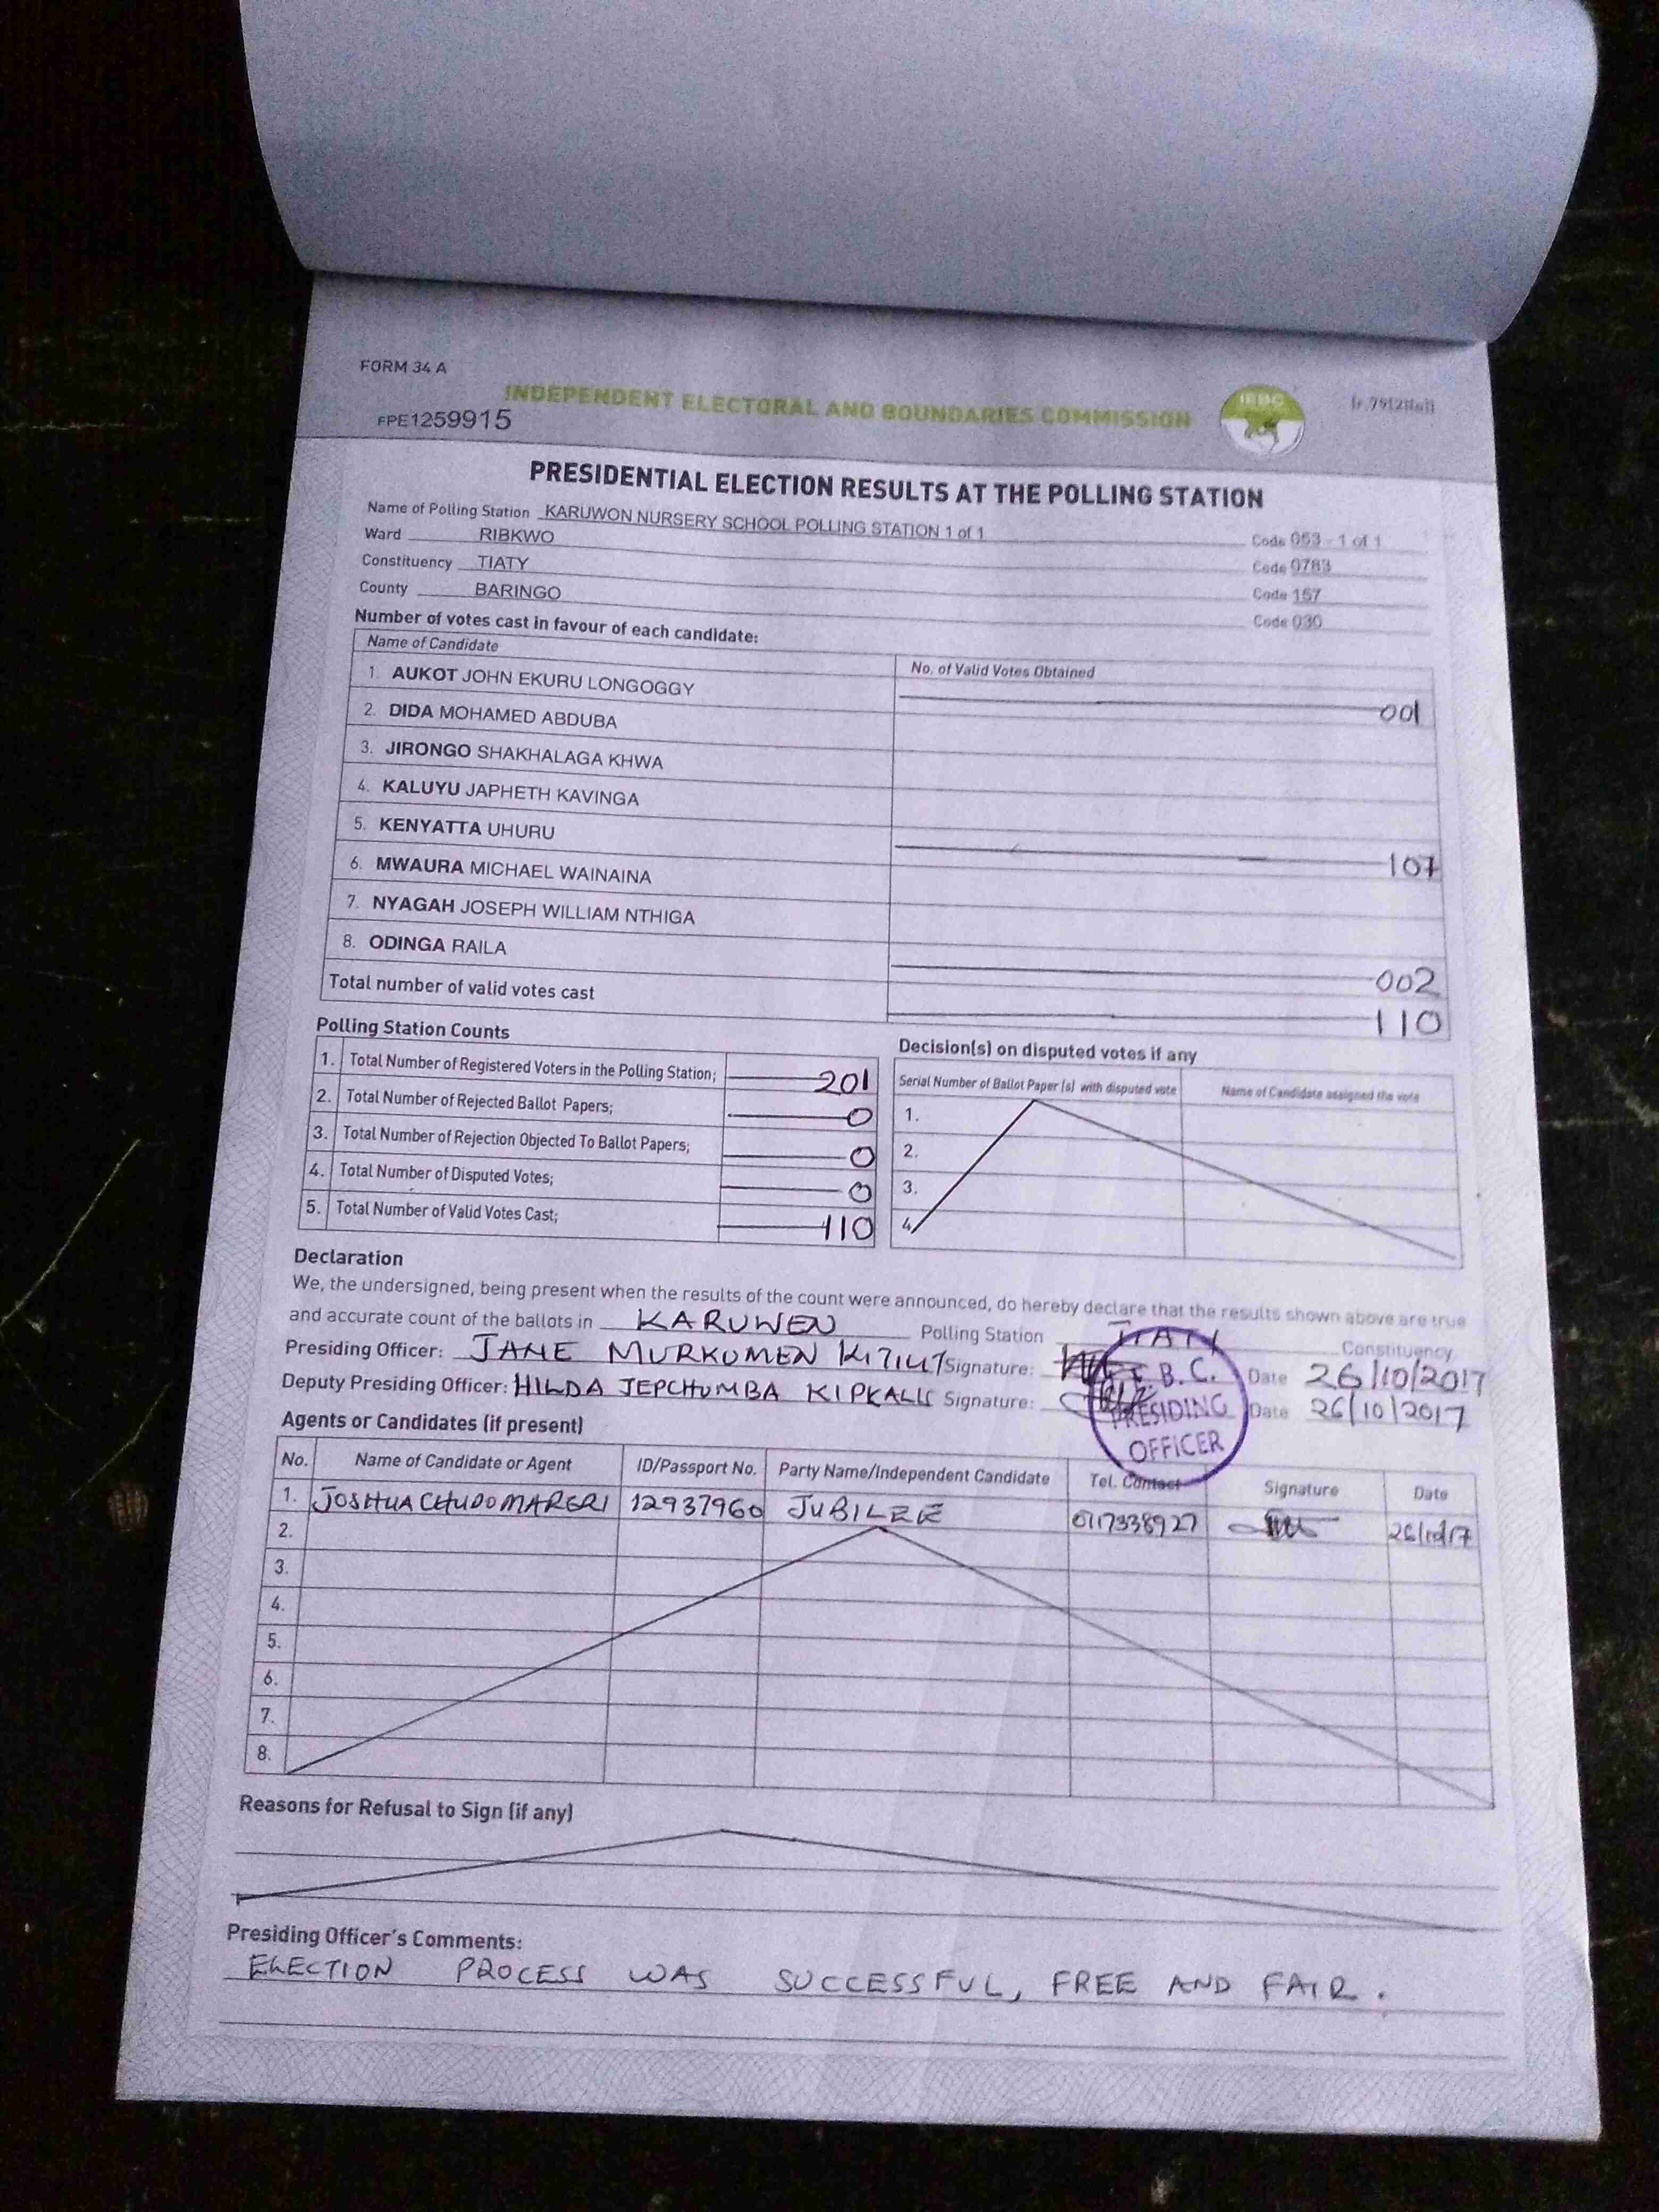 FORM 34 A
INDEPENDENT ELECTORAL AND BOUNDARIES COMMISSION
IEBC
FPE1259915
PRESIDENTIAL ELECTION RESULTS AT THE POLLING STATION
Name of Polling Station KARUWON NURSERY SCHOOL POLLING STATION 1 of 1 Code 053 - 1 of 1
Ward RIBKWO Code 0783
Constituency TIATY Code 157
County BARINGO Code 030
Number of votes cast in favour of each candidate:
Name of Candidate No. of Valid Votes Obtained
1. AUKOT JOHN EKURU LONGOGGY 001
2. DIDA MOHAMED ABDUBA
3. JIRONGO SHAKHALAGA KHWA
4. KALUYU JAPHETH KAVINGA
5. KENYATTA UHURU 107
6. MWAURA MICHAEL WAINAINA
7. NYAGAH JOSEPH WILLIAM NTHIGA
8. ODINGA RAILA 002
Total number of valid votes cast 110
Polling Station Counts
1. Total Number of Registered Voters in the Polling Station; 201
2. Total Number of Rejected Ballot Papers; 0
3. Total Number of Rejection Objected To Ballot Papers; 0
4. Total Number of Disputed Votes; 0
5. Total Number of Valid Votes Cast; 110
Decision(s) on disputed votes if any
Serial Number of Ballot Paper (s) with disputed vote Name of Candidate assigned the vote
1.
2.
3.
4.
Declaration
We, the undersigned, being present when the results of the count were announced, do hereby declare that the results shown above are true
and accurate count of the ballots in KARUWEN Polling Station TIATY Constituency
Presiding Officer: JANE MURKOMEN Signature: Date 26/10/2017
Deputy Presiding Officer: HILDA JEPCHUMBA Signature: Date 26/10/2017
B.C.
PRESIDING
OFFICER
Agents or Candidates (if present)
No. Name of Candidate or Agent ID/Passport No. Party Name/Independent Candidate Tel. Contact Signature Date
1. JOSHUA 12937960 JUBILEE 0117338927 26/10/17
2.
3.
4.
5.
6.
7.
8.
Reasons for Refusal to Sign (if any)
Presiding Officer's Comments:
ELECTION PROCESS WAS SUCCESSFUL, FREE AND FAIR.